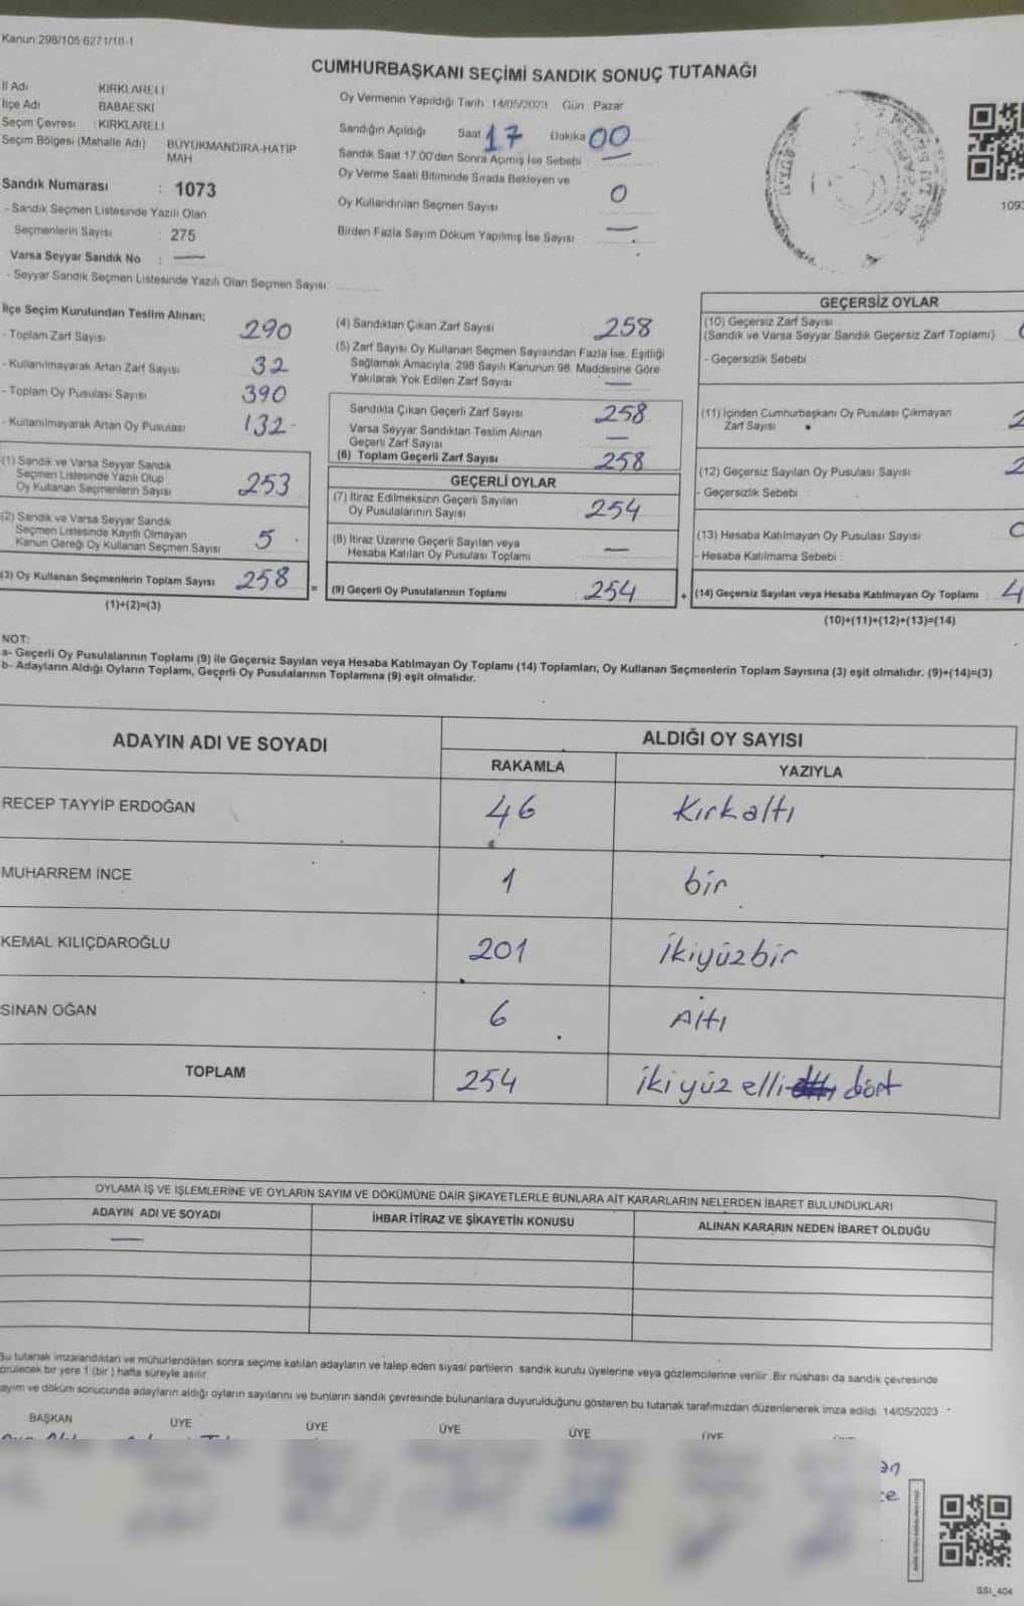 Kanun:298/105-6271/18-1
CUMHURBAŞKANI SEÇİMİ SANDIK SONUÇ TUTANAĞI
İl Adı KIRKLARELİ
İlçe Adı BABAESKİ
Seçim Çevresi : KIRKLARELİ
Seçim Bölgesi (Mahalle Adı) BÜYÜKMANDIRA-HATİP MAH
Sandık Numarası : 1073
- Sandık Seçmen Listesinde Yazılı Olan
Seçmenlerin Sayısı : 275
Varsa Seyyar Sandık No : —
- Seyyar Sandık Seçmen Listesinde Yazılı Olan Seçmen Sayısı:
Oy Vermenin Yapıldığı Tarih 14/05/2023 Gün Pazar
Sandığın Açıldığı Saat 17 Dakika 00
Sandık Saat 17:00'den Sonra Açımış İse Sebebi —
Oy Verme Saati Bitiminde Sırada Bekleyen ve
Oy Kullandırılan Seçmen Sayısı 0
Birden Fazla Sayım Döküm Yapılmış İse Sayısı —
1093
İlçe Seçim Kurulundan Teslim Alınan;
- Toplam Zarf Sayısı 290
- Kullanılmayarak Artan Zarf Sayısı 32
- Toplam Oy Pusulası Sayısı 390
- Kullanılmayarak Artan Oy Pusulası 132
(1) Sandık ve Varsa Seyyar Sandık
Seçmen Listesinde Yazılı Olup
Oy Kullanan Seçmenlerin Sayısı 253
(2) Sandık ve Varsa Seyyar Sandık
Seçmen Listesinde Kayıtlı Olmayan
Kanun Gereği Oy Kullanan Seçmen Sayısı 5
(3) Oy Kullanan Seçmenlerin Toplam Sayısı 258 =
(1)+(2)=(3)
(4) Sandıktan Çıkan Zarf Sayısı 258
(5) Zarf Sayısı Oy Kullanan Seçmen Sayısından Fazla İse, Eşitliği
Sağlamak Amacıyla, 298 Sayılı Kanunun 98. Maddesine Göre
Yakılarak Yok Edilen Zarf Sayısı —
Sandıkta Çıkan Geçerli Zarf Sayısı 258
Varsa Seyyar Sandıktan Teslim Alınan
Geçerli Zarf Sayısı —
(6) Toplam Geçerli Zarf Sayısı 258
GEÇERLİ OYLAR
(7) İtiraz Edilmeksizin Geçerli Sayılan
Oy Pusulalarının Sayısı 254
(8) İtiraz Üzerine Geçerli Sayılan veya
Hesaba Katılan Oy Pusulası Toplamı —
(9) Geçerli Oy Pusulalarının Toplamı : 254 +
GEÇERSİZ OYLAR
(10) Geçersiz Zarf Sayısı
(Sandık ve Varsa Seyyar Sandık Geçersiz Zarf Toplamı)
- Geçersizlik Sebebi
(11) İçinden Cumhurbaşkanı Oy Pusulası Çıkmayan
Zarf Sayısı 2
(12) Geçersiz Sayılan Oy Pusulası Sayısı 2
- Geçersizlik Sebebi
(13) Hesaba Katılmayan Oy Pusulası Sayısı 0
- Hesaba Katılmama Sebebi :
(14) Geçersiz Sayılan veya Hesaba Katılmayan Oy Toplamı 4
(10)+(11)+(12)+(13)=(14)
NOT:
a- Geçerli Oy Pusulalarının Toplamı (9) ile Geçersiz Sayılan veya Hesaba Katılmayan Oy Toplamı (14) Toplamları, Oy Kullanan Seçmenlerin Toplam Sayısına (3) eşit olmalıdır. (9)+(14)=(3)
b- Adayların Aldığı Oyların Toplamı, Geçerli Oy Pusulalarının Toplamına (9) eşit olmalıdır.
ADAYIN ADI VE SOYADI ALDIĞI OY SAYISI
RAKAMLA YAZIYLA
RECEP TAYYİP ERDOĞAN 46 Kırkaltı
MUHARREM İNCE 1 bir
KEMAL KILIÇDAROĞLU 201 İkiyüzbir
SİNAN OĞAN 6 Altı
TOPLAM 254 ikiyüz elli dört
OYLAMA İŞ VE İŞLEMLERİNE VE OYLARIN SAYIM VE DÖKÜMÜNE DAİR ŞİKAYETLERLE BUNLARA AİT KARARLARIN NELERDEN İBARET BULUNDUKLARI
ADAYIN ADI VE SOYADI İHBAR İTİRAZ VE ŞİKAYETİN KONUSU ALINAN KARARIN NEDEN İBARET OLDUĞU
—
Bu tutanak imzalandıktan ve mühürlendikten sonra seçime katılan adayların ve talep eden siyasi partilerin sandık kurulu üyelerine veya gözlemcilerine verilir. Bir nüshası da sandık çevresinde
görülecek bir yere 1 (bir) hafta süreyle asılır.
Sayım ve döküm sonucunda adayların aldığı oyların sayılarını ve bunların sandık çevresinde bulunanlara duyurulduğunu gösteren bu tutanak tarafımızdan düzenlenerek imza edildi. 14/05/2023
BAŞKAN ÜYE ÜYE ÜYE ÜYE ÜYE
SSI_404